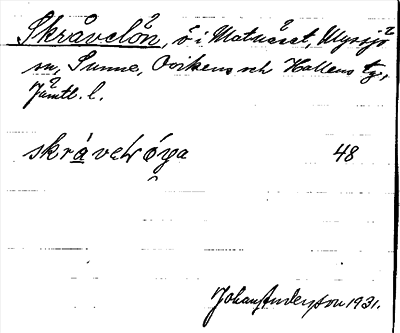 Skråvelön, ö i Matnäset, Myssjö
sn, Sunne, Ovikens och Hallens tg,
Jämtl. l.
skråvelöya 48
Johan Anderson 1931.